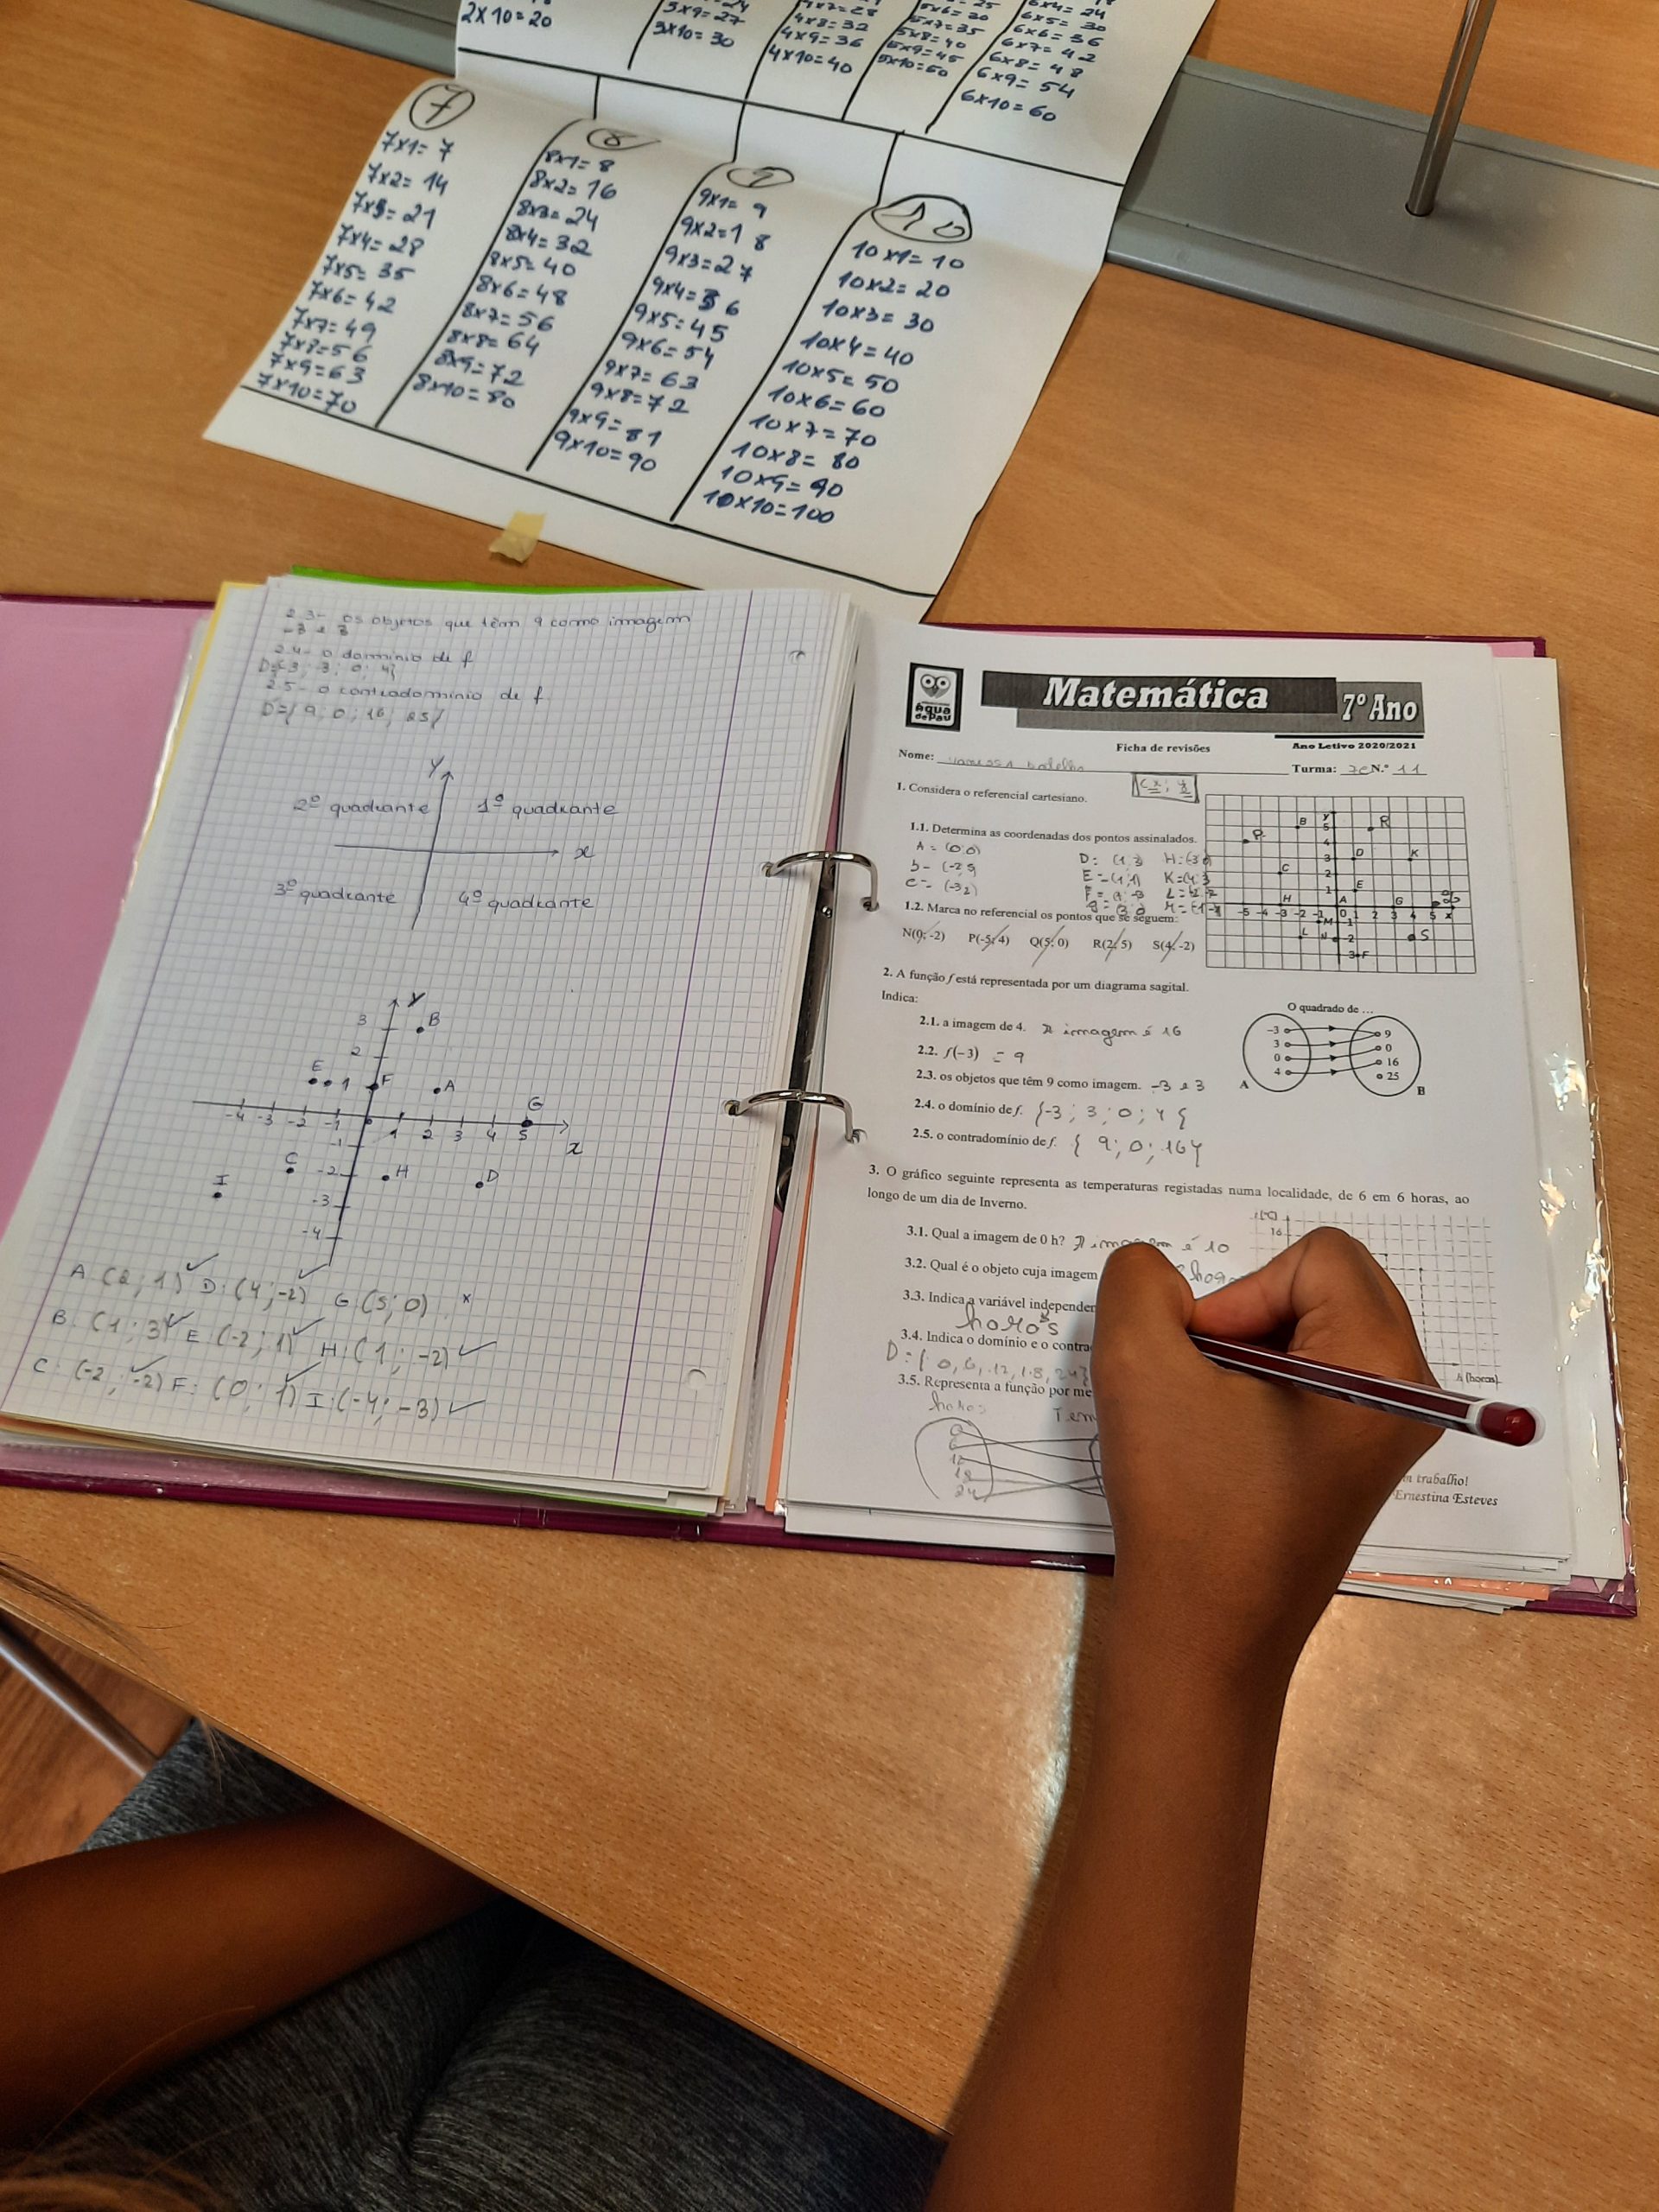 2x10=20
3x9=27
3x10=30
4x8=32
4x9=36
4x10=40
5x6=30
5x7=35
5x8=40
5x9=45
5x10=50
6x4=24
6x5=30
6x6=36
6x7=42
6x8=48
6x9=54
6x10=60
7
7x1=7
7x2=14
7x3=21
7x4=28
7x5=35
7x6=42
7x7=49
7x8=56
7x9=63
7x10=70
8
8x1=8
8x2=16
8x3=24
8x4=32
8x5=40
8x6=48
8x7=56
8x8=64
8x9=72
8x10=80
9
9x1=9
9x2=18
9x3=27
9x4=36
9x5=45
9x6=54
9x7=63
9x8=72
9x9=81
9x10=90
10
10x1=10
10x2=20
10x3=30
10x4=40
10x5=50
10x6=60
10x7=70
10x8=80
10x9=90
10x10=100
2.3- os objetos que têm 9 como imagem
-3 e 3
2.4- o domínio de f
2.5- o contradomínio de f
D'={9; 0; 16; 25}
y
2º quadrante 1º quadrante
x
3º quadrante 4º quadrante
y
3 B
2
E 1 F A
G
-4 -3 -2 -1 1 2 3 4 5
x
-1
C -2 H D
I -3
-4
A: (2; 1) D: (4; -2) G: (5; 0)
B: (1; 3) E: (-2; 1) H: (1; -2)
C: (-2; -2) F: (0; 1) I: (-4; -3)
Água de Pau
Matemática 7º Ano
Ficha de revisões Ano Letivo 2020/2021
Nome: Turma: Nº 11
1. Considera o referencial cartesiano.
1.1. Determina as coordenadas dos pontos assinalados.
A = (0;0)
D: (1; 3)
E = (1; 1)
1.2. Marca no referencial os pontos que se seguem:
N(0; -2) P(-5; 4) Q(5; 0) R(2; 5) S(4; -2)
y
P B R
C D K
E
H A G
-5 -4 -3 -2 -1 0 1 2 3 4 5 x
M
L N S
F
2. A função f está representada por um diagrama sagital.
Indica:
2.1. a imagem de 4. A imagem é 16
2.2. f(-3) = 9
2.3. os objetos que têm 9 como imagem. -3 e 3
2.4. o domínio de f. {-3; 3; 0; 4{
2.5. o contradomínio de f. { 9; 0; 16}
O quadrado de …
-3 9
3 0
0 16
4 25
A B
3. O gráfico seguinte representa as temperaturas registadas numa localidade, de 6 em 6 horas, ao
longo de um dia de Inverno.
16
3.1. Qual a imagem de 0 h? A imagem é 10
3.2. Qual é o objeto cuja imagem
3.3. Indica a variável
horas
3.4. Indica o domínio e o
D={0, 6, 12, 18, 24}
3.5. Representa a função por
horas
0
6
12
18
24
(horas)
trabalho!
Ernestina Esteves